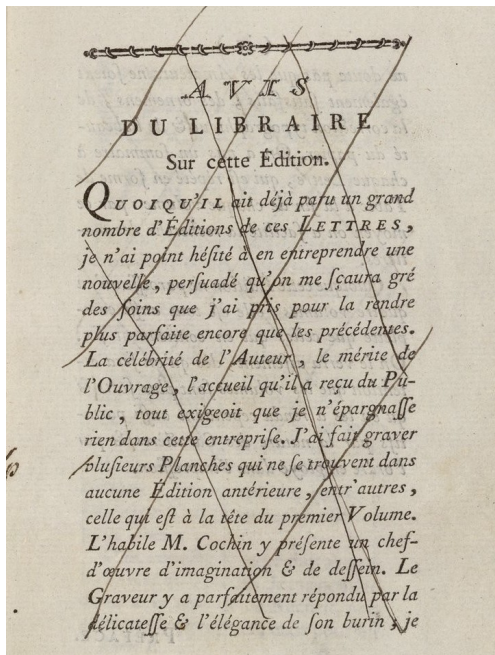 AVIS
DU LIBRAIRE
Sur cette Édition.
QUOIQU'IL ait déjà paru un grand
nombre d'Éditions de ces LETTRES,
je n'ai point héſité à en entreprendre une
nouvelle, perſuadé qu'on me ſçaura gré
des ſoins que j'ai pris pour la rendre
plus parfaite encore que les précédentes.
La célébrité de l'Auteur, le mérite de
l'Ouvrage, l'accueil qu'il a reçu du Pu-
blic, tout exigeoit que je n'épargnaſſe
rien dans cette entrepriſe. J'ai fait graver
pluſieurs Planches qui ne ſe trouvent dans
aucune Édition antérieure, entr'autres,
celle qui eſt à la tête du premier Volume.
L'habile M. Cochin y préſente un chef-
d'œuvre d'imagination & de deſſein. Le
Graveur y a parfaitement répondu par la
délicateſſe & l'élégance de ſon burin; je